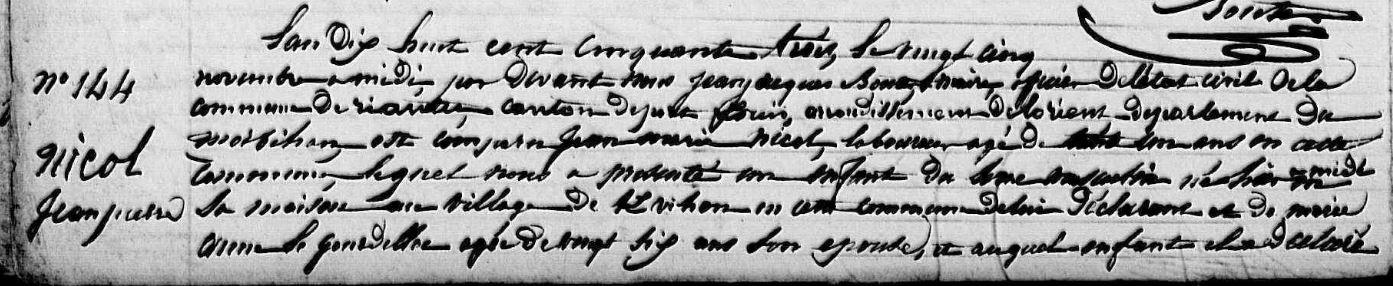 L'an Dix huit cent Cinquante trois, le vingt cinq
n° 144
novembre a midi, par Devant nous jean jacques maire, officier De l'état civil De la
commune De riantec, canton De port Louis, arrondissement De lorient Departement Du
morbihan, est comparu jean marie Nicol, laboureur agé de ans en cette
Nicol
commune, lequel nous a présenté un enfant Du sexe masculin né hier a midi
jean pierre
Sa maison au village De en cette commune De lui Déclarant et De marie
anne le agée De vingt six ans Son epouse, et auquel enfant il a déclaré